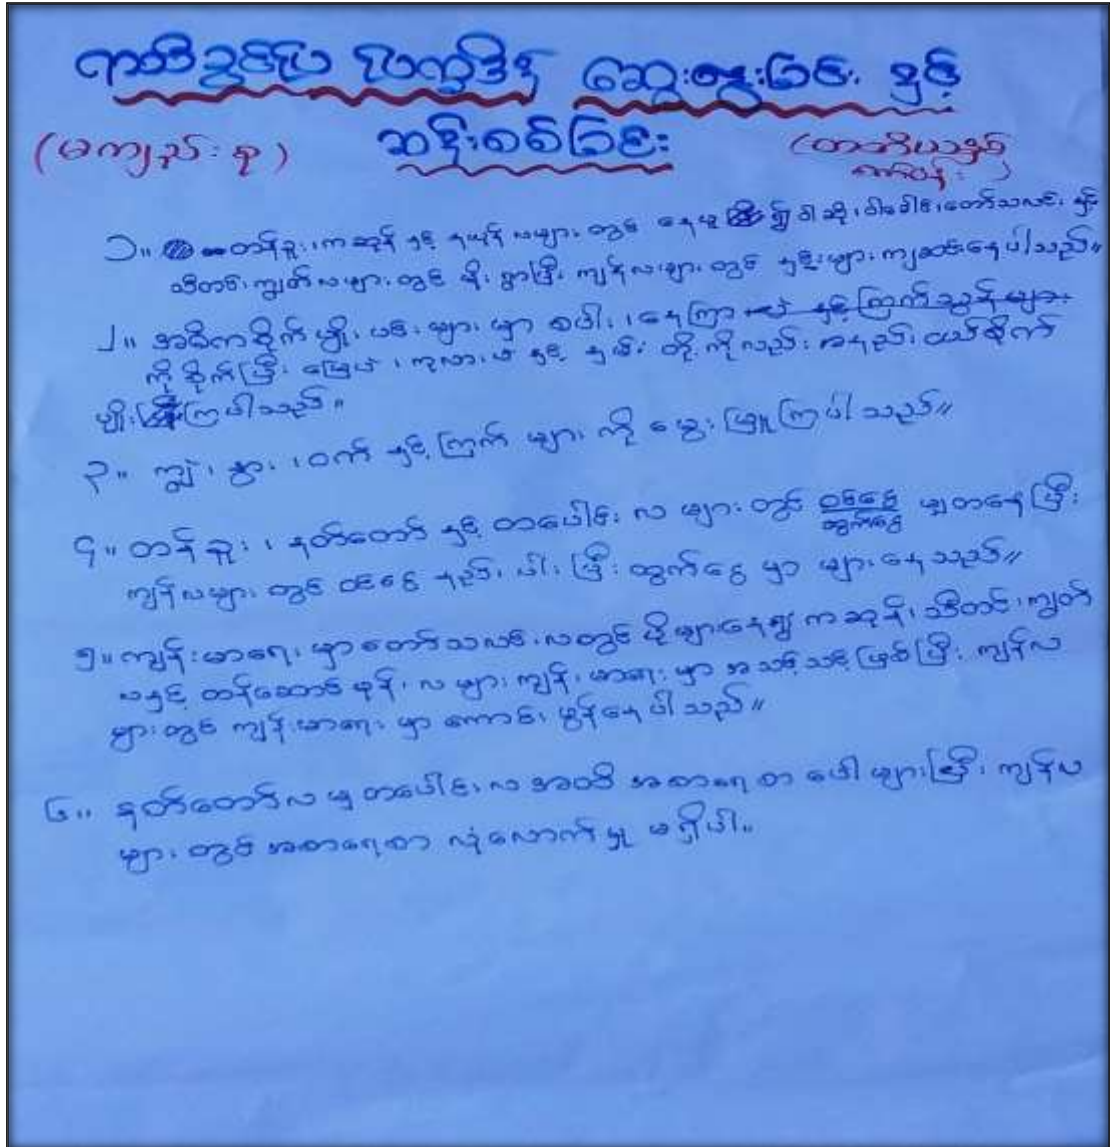 ရာသီခွင်ပြ ပြက္ခဒိန် ဆွေးနွေးခြင်း နှင့်
ဆန်းစစ်ခြင်း
(မကျည်းစု)
၁။ တန်ခူး၊ ကဆုန် နှင့် နယုန် လများ တွင် နေပူ၍ ဝါဆို၊ ဝါခေါင်၊ တော်သလင်း နှင့်
သီတင်းကျွတ် လများ တွင် မိုး ရွာပြီး ကျန်လများ တွင် နှင်းများ ကျဆင်းနေပါသည်။
၂။ အဓိကစိုက်မျိုး ပင်များ မှာ စပါး၊ နေကြာ
ကို စိုက်ပြီး မြေပဲ၊ ကုလားပဲ နှင့် နှမ်း တို့ ကိုလည်း အနည်း ငယ်စိုက်
ပျိုးကြပါသည်။
၃။ ကျွဲ၊ နွား၊ ဝက် နှင့် ကြက် များ ကို မွေး မြူကြပါသည်။
၄။ တန်ခူး၊ နတ်တော် နှင့် တပေါင်း လ များ တွင် ဝင်ငွေ ထွက်ငွေ မျှတနေပြီး
ကျန်လများ တွင် ဝင်ငွေ နည်း ပါး ပြီး ထွက်ငွေ မှာ များနေသည်။
၅။ ကျန်းမာရေး မှာ တော်သလင်း လတွင် ပိုများနေ၍ ကဆုန်၊ သီတင်းကျွတ်
လနှင့် တန်ဆောင်မုန်း လ များ ကျန်းမာရေး မှာ အသင့်သင့်ဖြစ်ပြီး ကျန်လ
များတွင် ကျန်းမာရေး မှာ ကောင်း မွန်နေပါသည်။
၆။ နတ်တော်လ မှ တပေါင်းလ အထိ အစာရေစာ ပေါ များပြီး ကျန်လ
များ တွင် အစာရေစာ လုံလောက်မှု မရှိပါ။